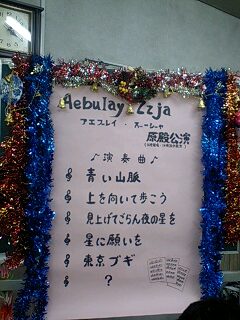 Aebulay Zzja
アエブレイ・ズージャ
原殿公演
♪演奏曲♪
青い山脈
上を向いて歩こう
見上げてごらん夜の星を
星に願いを
東京ブギ
?